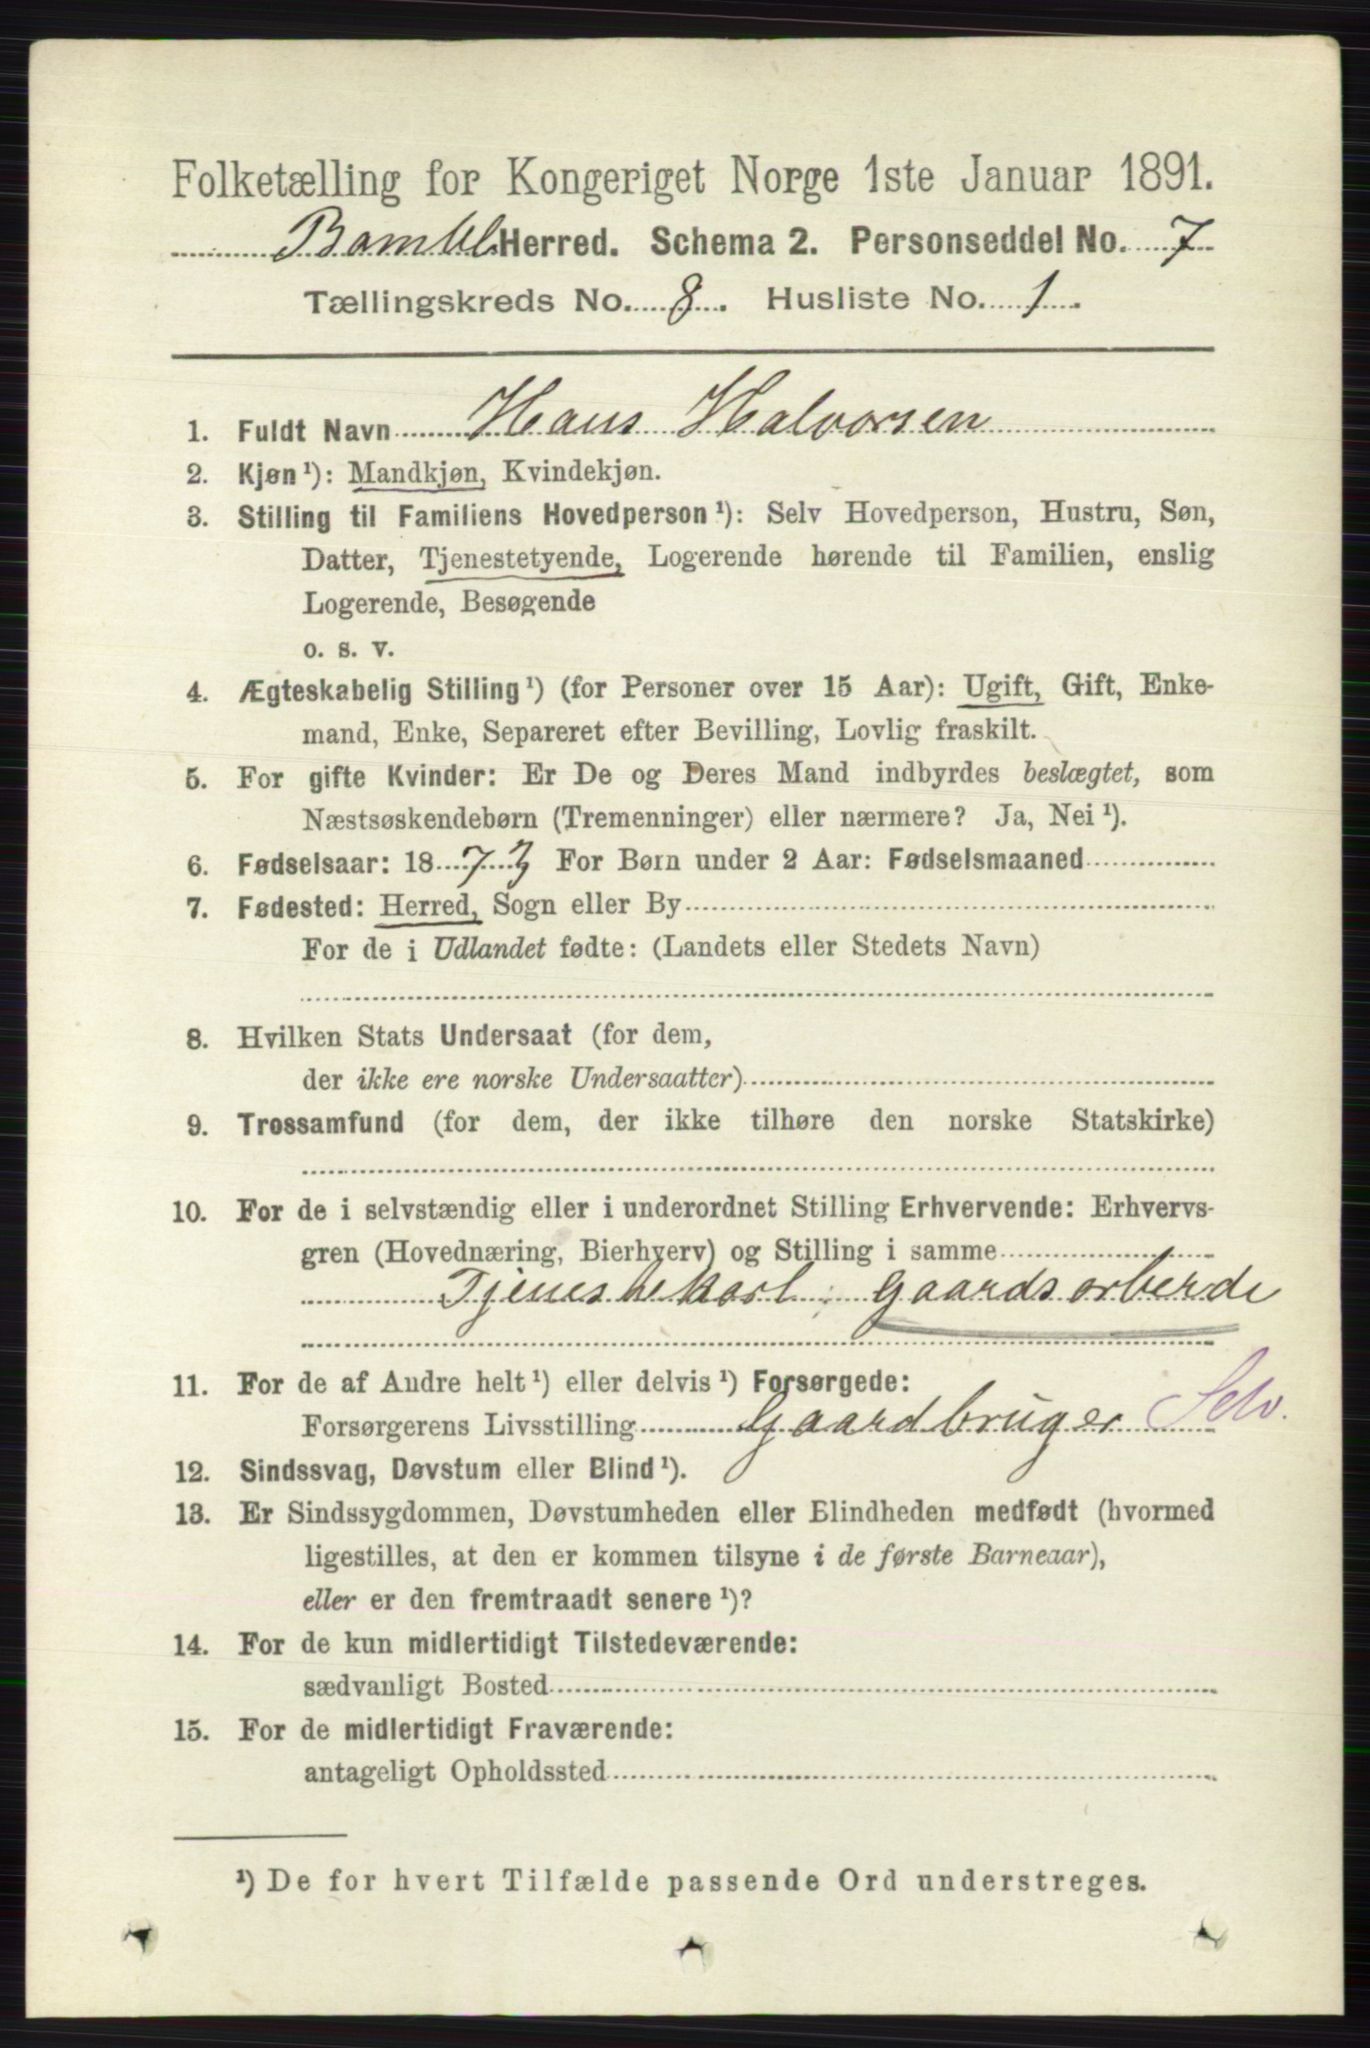 Folketælling for Kongeriget Norge 1ste Januar 1891.
Bamble Herred. Schema 2. Personseddel No. 7
Tællingskreds No. 8. Husliste No. 1.
1. Fuldt Navn Hans Halvorsen
2. Kjøn¹): Mandkjøn, Kvindekjøn.
3. Stilling til Familiens Hovedperson¹): Selv Hovedperson, Hustru, Søn,
Datter, Tjenestetyende, Logerende hørende til Familien, enslig
Logerende, Besøgende
o. s. v.
4. Ægteskabelig Stilling¹) (for Personer over 15 Aar): Ugift, Gift, Enke-
mand, Enke, Separeret efter Bevilling, Lovlig fraskilt.
5. For gifte Kvinder: Er De og Deres Mand indbyrdes beslægtet, som
Næstsøskendebørn (Tremenninger) eller nærmere? Ja, Nei¹).
6. Fødselsaar: 1873 For Børn under 2 Aar: Fødselsmaaned
7. Fødested: Herred, Sogn eller By
For de i Udlandet fødte: (Landets eller Stedets Navn)
8. Hvilken Stats Undersaat (for dem,
der ikke ere norske Undersaatter)
9. Trossamfund (for dem, der ikke tilhøre den norske Statskirke)
10. For de i selvstændig eller i underordnet Stilling Erhvervende: Erhvervs-
gren (Hovednæring, Bierhverv) og Stilling i samme
Tjenestekarl: Gaardsarbeide
11. For de af Andre helt¹) eller delvis¹) Forsørgede:
Forsørgerens Livsstilling Gaardbruger Selv.
12. Sindssvag, Døvstum eller Blind¹).
13. Er Sindssygdommen, Døvstumheden eller Blindheden medfødt (hvormed
ligestilles, at den er kommen tilsyne i de første Barneaar),
eller er den fremtraadt senere¹)?
14. For de kun midlertidigt Tilstedeværende:
sædvanligt Bosted
15. For de midlertidigt Fraværende:
antageligt Opholdssted
¹) De for hvert Tilfælde passende Ord understreges.